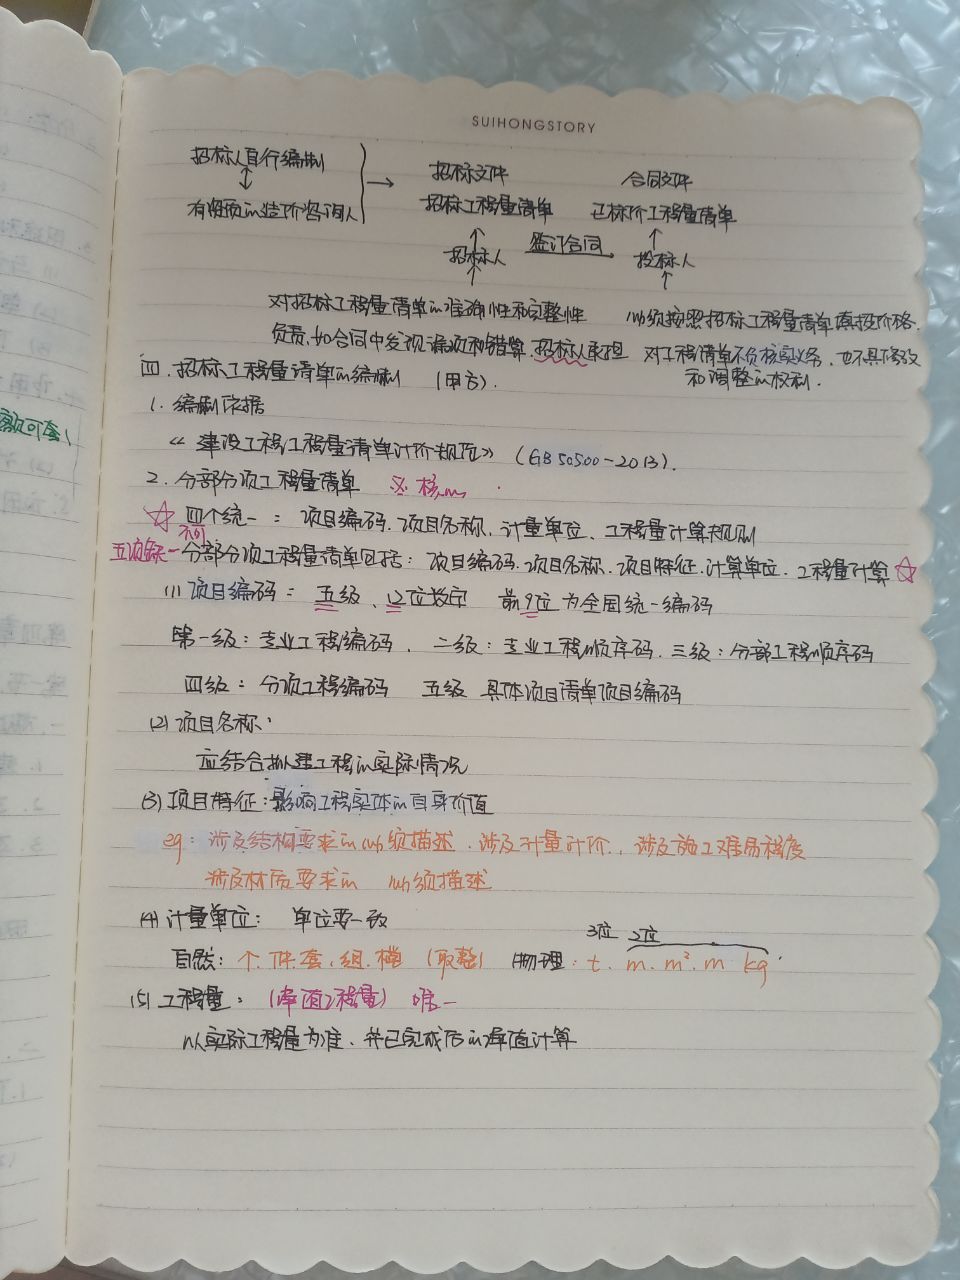 SUIHONGSTORY
招标人自行编制
有资质的造价咨询人
招标文件 合同文件
招标工程量清单 已标价工程量清单
签订合同
招标人 投标人
对招标工程量清单的准确性和完整性 必须按照招标工程量清单填报价格.
负责,如合同中发现漏项和错算,招标人承担 对工程清单不负核实义务、也不具修改
和调整的权利.
四.招标工程量清单的编制 (甲方).
1. 编制依据
《建设工程工程量清单计价规范》(GB 50500-2013).
2.分部分项工程量清单 ※核心
☆四个统一:项目编码.项目名称.计量单位、工程量计算规则
五项缺一不可 分部分项工程量清单包括:项目编码.项目名称.项目特征.计算单位.工程量计算☆
(1)项目编码:五级、12位数字 前9位为全国统一编码
第一级:专业工程编码、二级:专业工程顺序码.三级:分部工程顺序码
四级:分项工程编码 五级 具体项目清单项目编码
(2)项目名称:
应结合拟建工程的实际情况
(3)项目特征:影响工程实体的自身价值
eg:涉及结构要求的必须描述.涉及计量计价.,涉及施工难易程度
涉及材质要求的 必须描述
(4)计量单位: 单位要一致
3位 2位
自然:个.件.套.组.樘(取整) 物理:t.m.m².m kg
(5)工程量:(净值工程量) 唯一
以实际工程量为准、并已完成后的净值计算
额可套